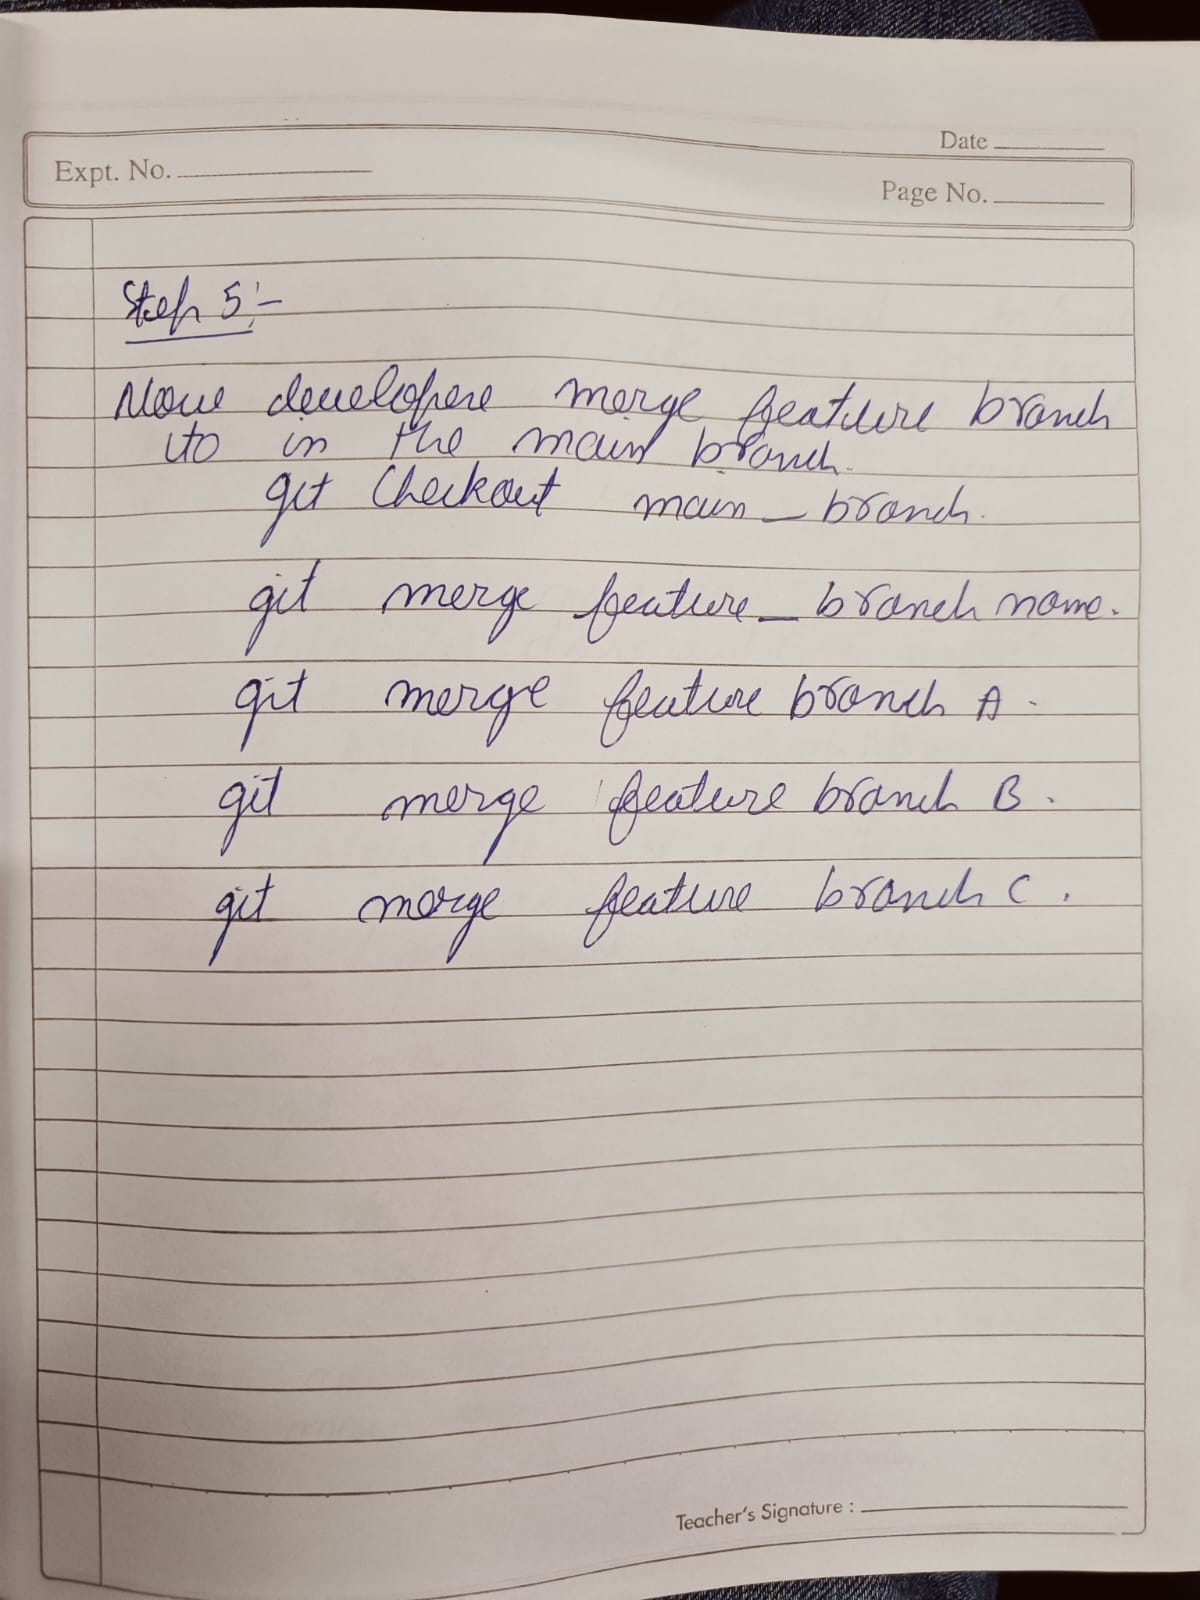 Date
Expt. No.
Page No.
Step 5:-
Now developere merge feature branch
to in the main branch.
git Checkout main_branch.
git merge feature_branch name.
git merge feature branch A.
git merge feature branch B.
git merge feature branch C.
Teacher's Signature :